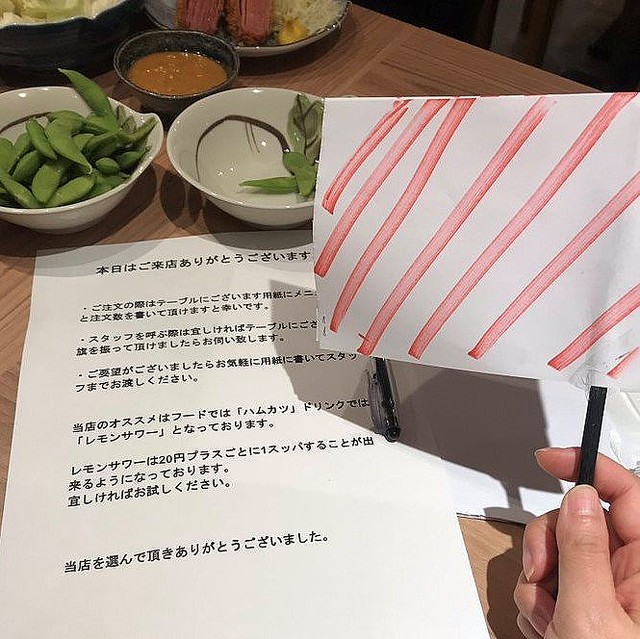 本日はご来店ありがとうございます
・ご注文の際はテーブルにございます用紙にメニ
と注文数を書いて頂けますと幸いです。
・スタッフを呼ぶ際は宜しければテーブルにござ
旗を振って頂けましたらお伺い致します。
・ご要望がございましたらお気軽に用紙に書いてスタッ
フまでお渡しください。
当店のオススメはフードでは「ハムカツ」ドリンクでは
「レモンサワー」となっております。
レモンサワーは20円プラスごとに1スッパすることが出
来るようになっております。
宜しければお試しください。
当店を選んで頂きありがとうございました。